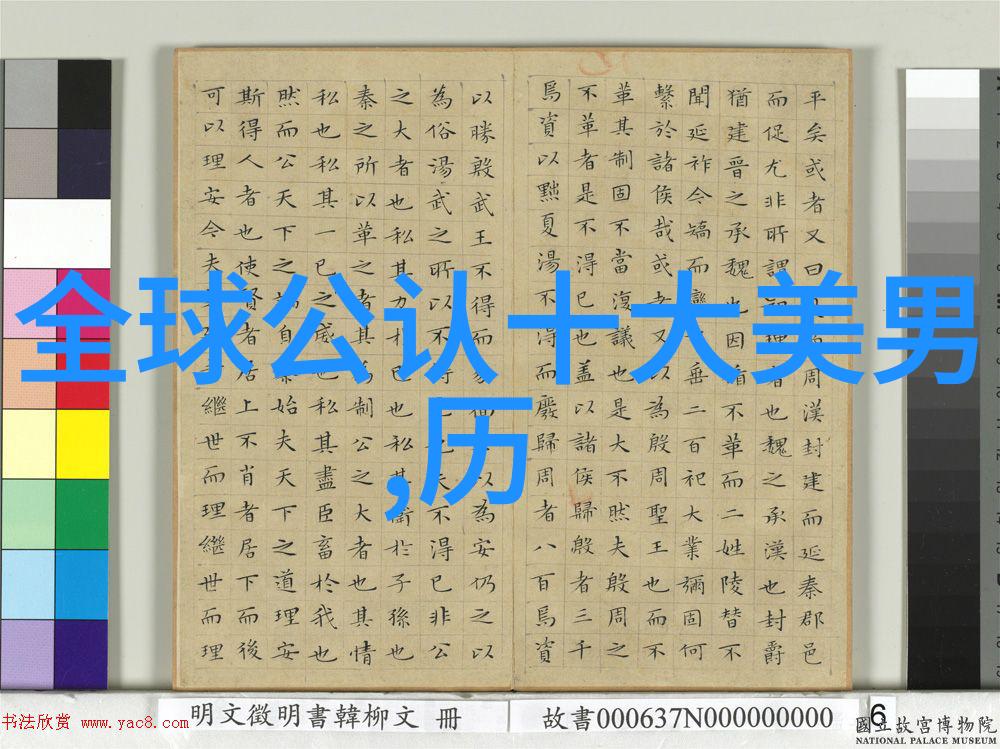 全球公认十大美男
,历
平矣或者又曰周漢封建而延秦郡邑
而促尤非所謂理者也魏之承漢也封爵
猶建晉之承魏也因循不革而二姓陵替不
聞延祚今矯而垂二百祀大業彌固何
繫於諸侯哉或者又以為殷周聖王也而不
革其制固不當復議也是大不然夫殷周之
不革者是不得已也蓋以諸侯歸殷者三千
焉資以黜夏湯不得而廢歸周者八百焉資
以勝殷武王不得而以為安仍之以
為俗湯武之所以不得夫不得已非公
之大者也私其力於己也私其衛於子孫也
秦之所以革之者其為制公之大者也其情
私也私其一己之威也私其盡臣畜於我也
然而公天下之端自始夫天下之道理安
斯得人者也使賢者居上不肖者居下而後
可以理安今夫繼世而理繼世而理
明文徵明書韓柳文 冊
故書000637N000000000
6
書法欣赏 www.yac8.com
國立故宮博物院
NATIONAL PALACE MUSEUM